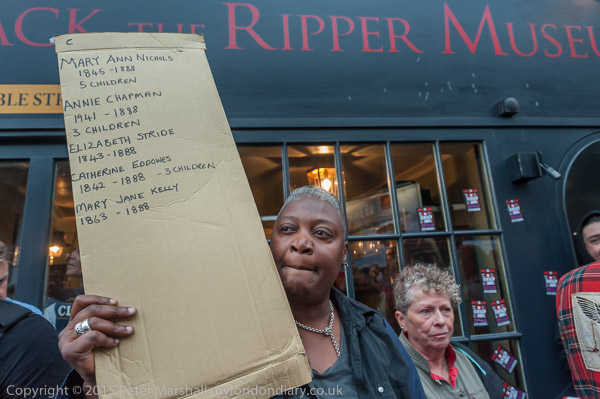 ACK THE RIPPER MUSEU
BLE ST
C
MARY ANN NICHOLS
1845 - 1888
5 CHILDREN
ANNIE CHAPMAN
1941 - 1888
3 CHILDREN
ELIZABETH STRIDE
1843 - 1888
CATHERINE EDDOWES
1842 - 1888 - 3 CHILDREN
MARY JANE KELLY
1863 - 1888
Copyright © 2015 Peter Marshall mylondondiary.co.uk